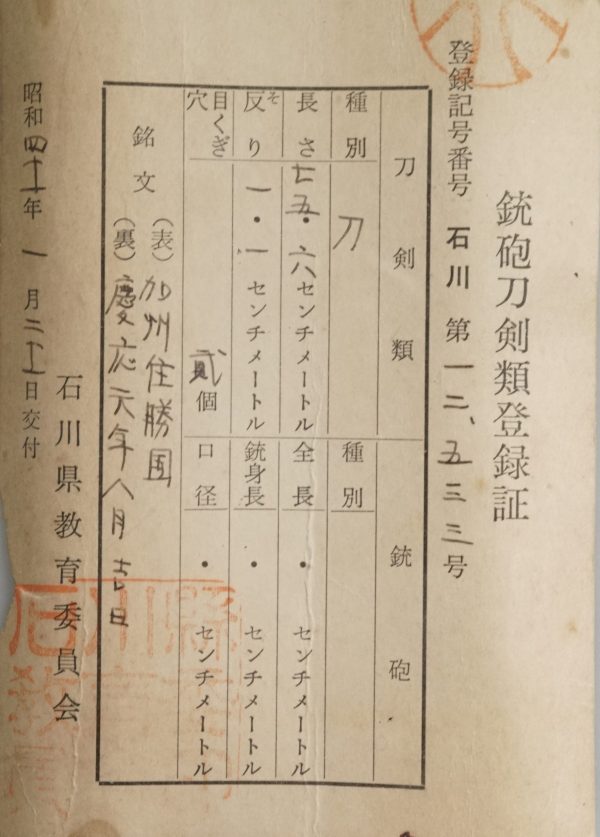 銃砲刀剣類登録証
登録記号番号 石川 第 一二、五三三号
刀剣類
銃砲
種別
刀
種別
長さ
七五・六センチメートル
全長
・ センチメートル
反り
そ
一・一センチメートル
銃身長
・ センチメートル
目くぎ穴
貳個
口径
・ センチメートル
銘文
(表)加州住勝国
(裏)慶応元年八月吉日
石川県教育委員会
昭和四十年一月二十日交付